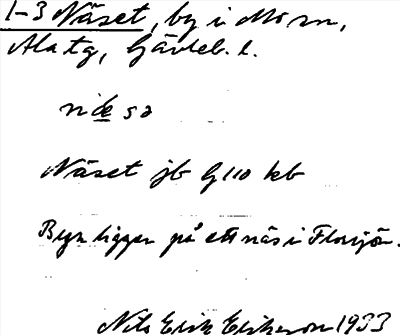 1-3 Näset, by i Mo sn,
Ala tg, Gävleb. l.
näsə
Näset jb G 110 kb
Byn ligger på ett näs i Florsjön.
Nils Erik Eriksson 1933